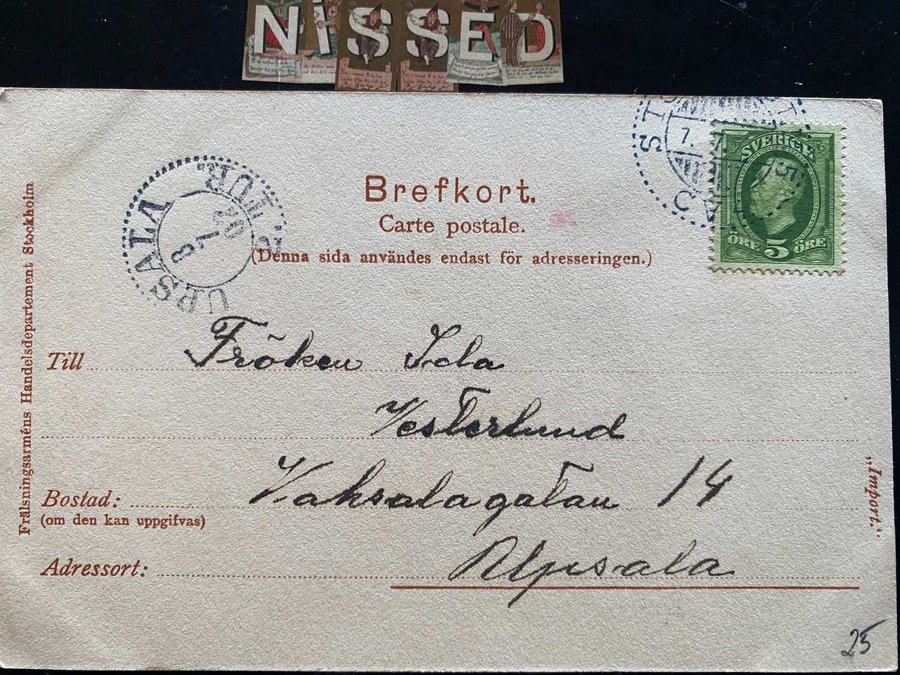 NISSED
Brefkort.
Carte postale.
(Denna sida användes endast för adresseringen.)
SVERIGE
ÖRE 5 ÖRE
UPSALA
8 7 02
TUR
7.
Frälsningsarméns Handelsdepartement Stockholm
Till Fröken Ida
Vesterlund
Bostad: Vaksalagatan 14
(om den kan uppgifvas)
Adressort: Upsala
„Import."
25